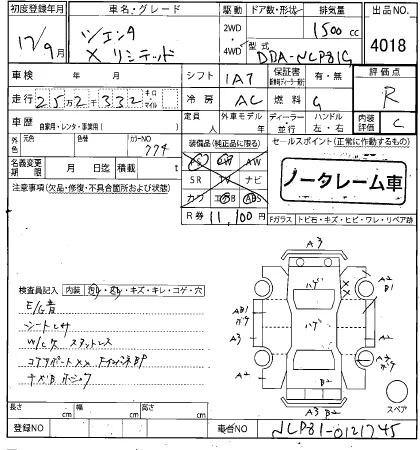 初度登録年月 車名・グレード 駆動 ドア数・形状 排気量 出品NO.
17/9月 2WD 4WD 1500cc
Xリミテッド 型式 DBA-NCP81G 4018
車検 年 月 シフト IA7 保証書 有・無 評価点
走行 25万2千332 キロ マイル 冷房 AC 燃料 G R
車歴 自家用・レンタ・事業用( ) 定員 人 外車モデル 年 ディーラー 並行 ハンドル 左・右 内装評価 C
外色 元色 色替 カラーNO 774 装備品(純正品に限る) セールスポイント(正常に作動するもの)
名義変更期限 月 日迄 積載 t AW
注意事項(欠品・修復・不具合箇所および状態) SR TV ナビ ノータレーム車
カワ エアB ABS
R券 11,100円 Fガラス トビ石・キズ・ヒビ・ワレ・リペア跡
A3
検査員記入 内装 キズ・キレ・コゲ・穴
ハゲ
A2 B1
E/G音
AB1
シートレサ
ハゲ
A3
A2
コアサポートXX FインパネBP
A2
A2
B2
スペア
A3 B2
長さ cm 幅 cm 高さ cm
登録NO 車台NO NCP81-0121745